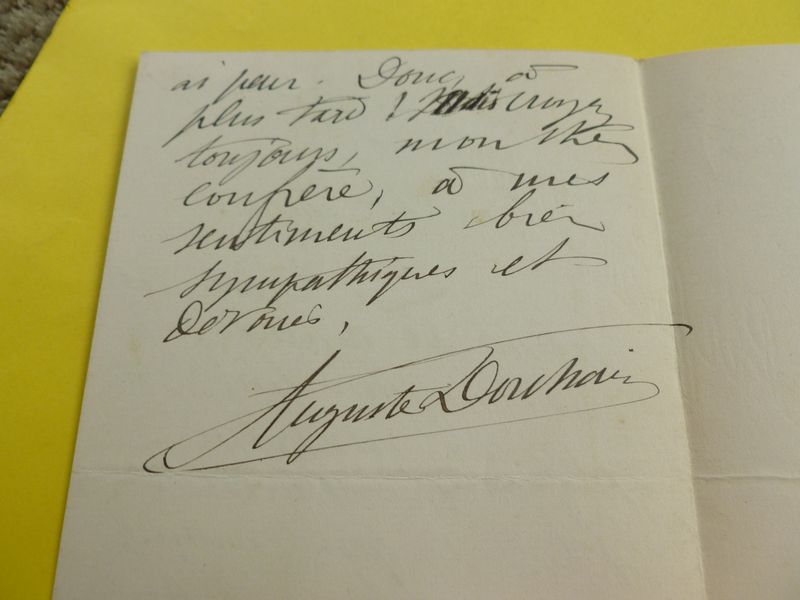 ai peur. Donc, à
plus tard ! Mais croyez
toujours, mon cher
confrère, à mes
sentiments bien
sympathiques et
dévoués,
Auguste Dorchain